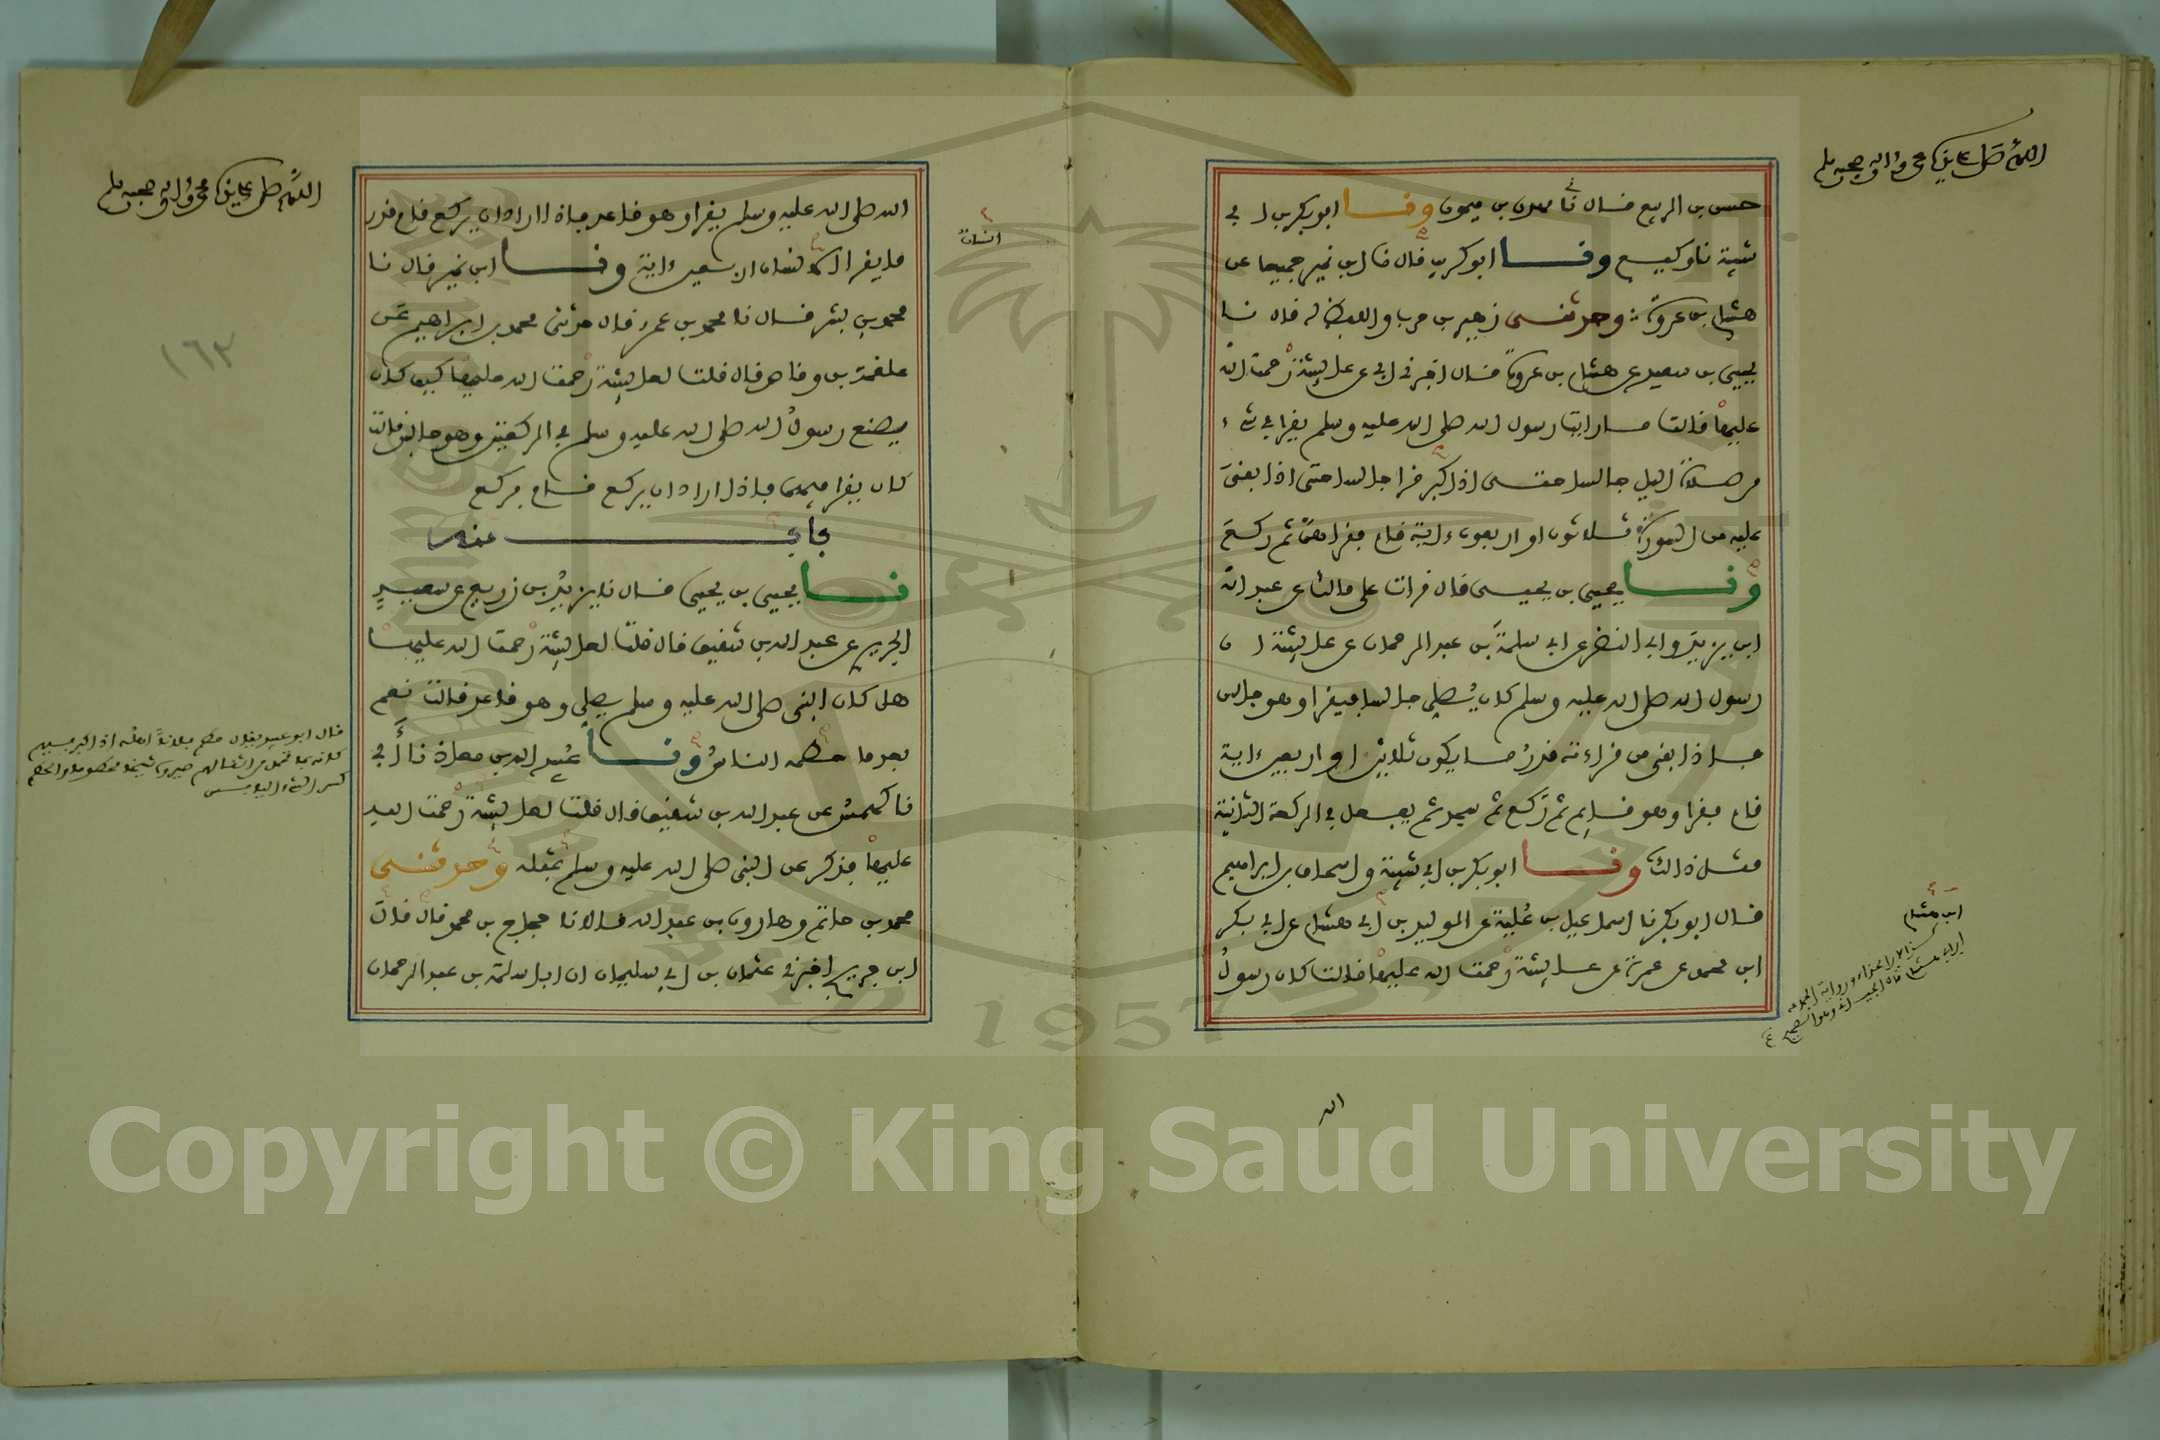 اللهم صل على سيدنا محمد وءاله وصحبه وسلم
حسن بن الربيع قال نا مهدي بن ميمون ونا ابو بكر بن ابي
شيبة نا وكيع ونا ابو كريب قال نا ابن نمير جميعا عن
هشام بن عروة وحدثني زهير بن حرب واللفظ له قال نا
يحيى بن سعيد عن هشام بن عروة قال اخبرني ابي عن عايشة رحمت الله
عليها قالت ما رايت رسول الله صلى الله عليه وسلم يقرا في شيء
من صلاة اليل جالسا حتى اذا كبر قرا جالسا حتى اذا بقي
عليه من السورة ثلاثون او اربعون ءاية قام فقراهن ثم ركع
ونا يحيى بن يحيى قال قرات على مالك عن عبد الله
ابن يزيد وابي النضر عن ابي سلمة بن عبد الرحمان عن عايشة ان
رسول الله صلى الله عليه وسلم كان يصلي جالسا فيقرا وهو جالس
فاذا بقي من قراءته قدر ما يكون ثلاثين او اربعين ءاية
قام فقرا وهو قايم ثم ركع ثم سجد ثم يفعل في الركعة الثانية
مثل ذالك ونا ابو بكر بن ابي شيبة واسحاق بن ابراهيم
قال ابو بكر نا اسماعيل بن علية عن الوليد بن ابي هشام عن ابي بكر
ابن محمد عن عمرة عن عايشة رحمت الله عليها قالت كان رسول
ابن هشام
الله
اللهم صل على سيدنا محمد وءاله وصحبه وسلم
الله صلى الله عليه وسلم يقرا وهو قاعد فاذا اراد ان يركع قام قدر
ما يقرا انسان اربعين ءاية ونا ابن نمير قال نا
انسان
محمد بن بشر قال نا محمد بن عمرو قال حدثني محمد بن ابراهيم عن
علقمة بن وقاص قال قلت لعايشة رحمت الله عليها كيف كان
يصنع رسول الله صلى الله عليه وسلم في الركعتين وهو جالس قالت
كان يقرا فيهما فاذا اراد ان يركع قام فركع
باب منه
نا يحيى بن يحيى قال نا يزيد بن زريع عن سعيد
الجريري عن عبد الله بن شقيق قال قلت لعايشة رحمت الله عليها
هل كان النبي صلى الله عليه وسلم يصلي وهو قاعد قالت نعم
بعدما حطمه الناس ونا عبيد الله بن معاذ نا أبي
نا كهمس عن عبد الله بن شقيق قال قلت لعايشة رحمت الله
عليها فذكر عن النبي صلى الله عليه وسلم بمثله وحدثني
محمد بن حاتم وهارون بن عبد الله قالا نا حجاج بن محمد قال قال
ابن جريج اخبرني عثمان بن ابي سليمان ان ابا سلمة بن عبد الرحمان
١٦٣
Copyright © King Saud University
1957